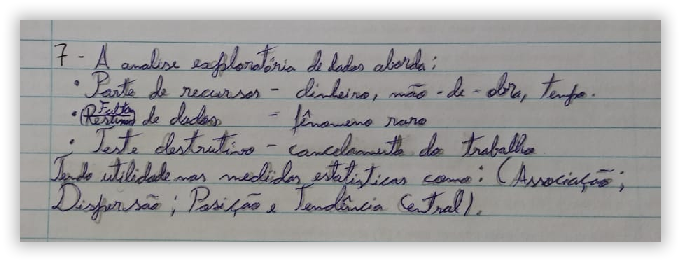 7 - A analise exploratória de dados aborda:
• Parte de recursos - dinheiro, mão-de-obra, tempo.
• Falta de dados - fênomeno raro
• Teste destrutivo - cancelamento do trabalho
Tendo utilidade nas medidas estatisticas como: (Associação;
Dispersão; Posição e Tendência Central).